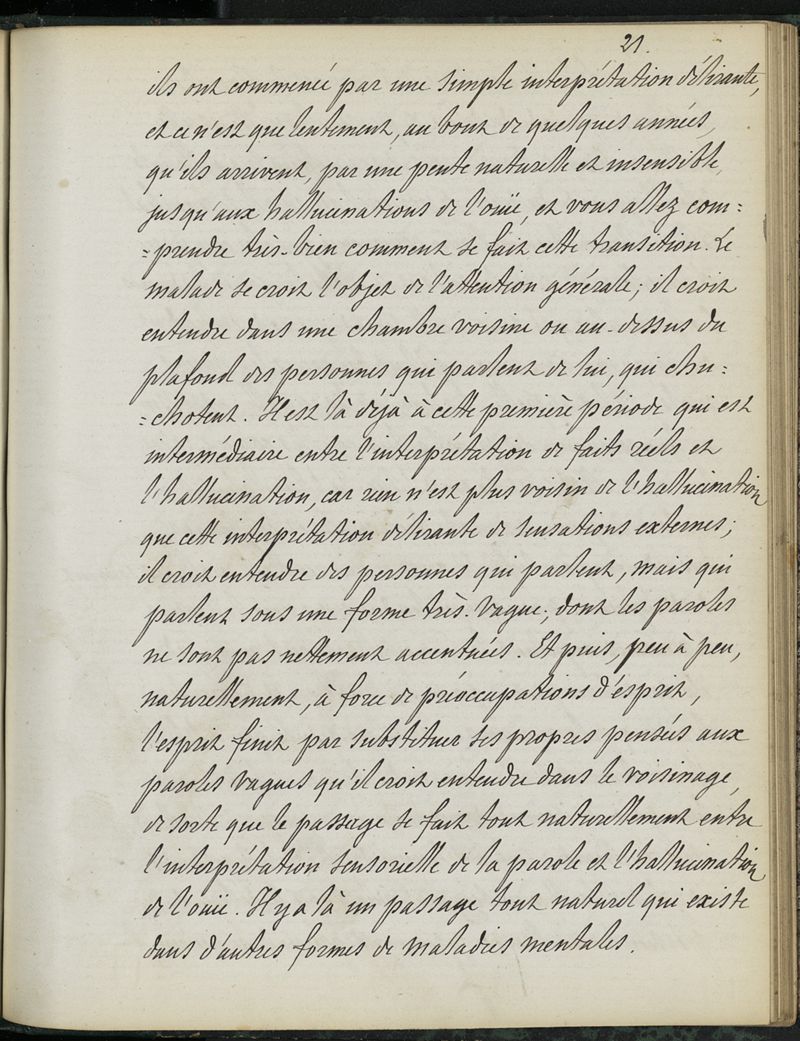 21.
ils ont commencé par une simple interprétation délirante,
et ce n'est que lentement, au bout de quelques années,
qu'ils arrivent, par une pente naturelle et insensible,
jusqu'aux hallucinations de l'ouïe, et vous allez com=
=prendre très-bien comment se fait cette transition. Le
malade se croit l'objet de l'attention générale; il croit
entendre dans une chambre voisine ou au-dessus du
plafond des personnes qui parlent de lui, qui chu=
=chotent. Il est là déjà à cette première période qui est
intermédiaire entre l'interprétation de faits réels et
l'hallucination, car rien n'est plus voisin de l'hallucination
que cette interprétation délirante de sensations externes;
il croit entendre des personnes qui parlent, mais qui
parlent sous une forme très-vague, dont les paroles
ne sont pas nettement accentuées. Et puis, peu à peu,
naturellement, à force de préoccupations d'esprit,
l'esprit finit par substituer ses propres pensées aux
paroles vagues qu'il croit entendre dans le voisinage,
de sorte que le passage se fait tout naturellement entre
l'interprétation sensorielle de la parole et l'hallucination
de l'ouïe. Il y a là un passage tout naturel qui existe
dans d'autres formes de maladies mentales.